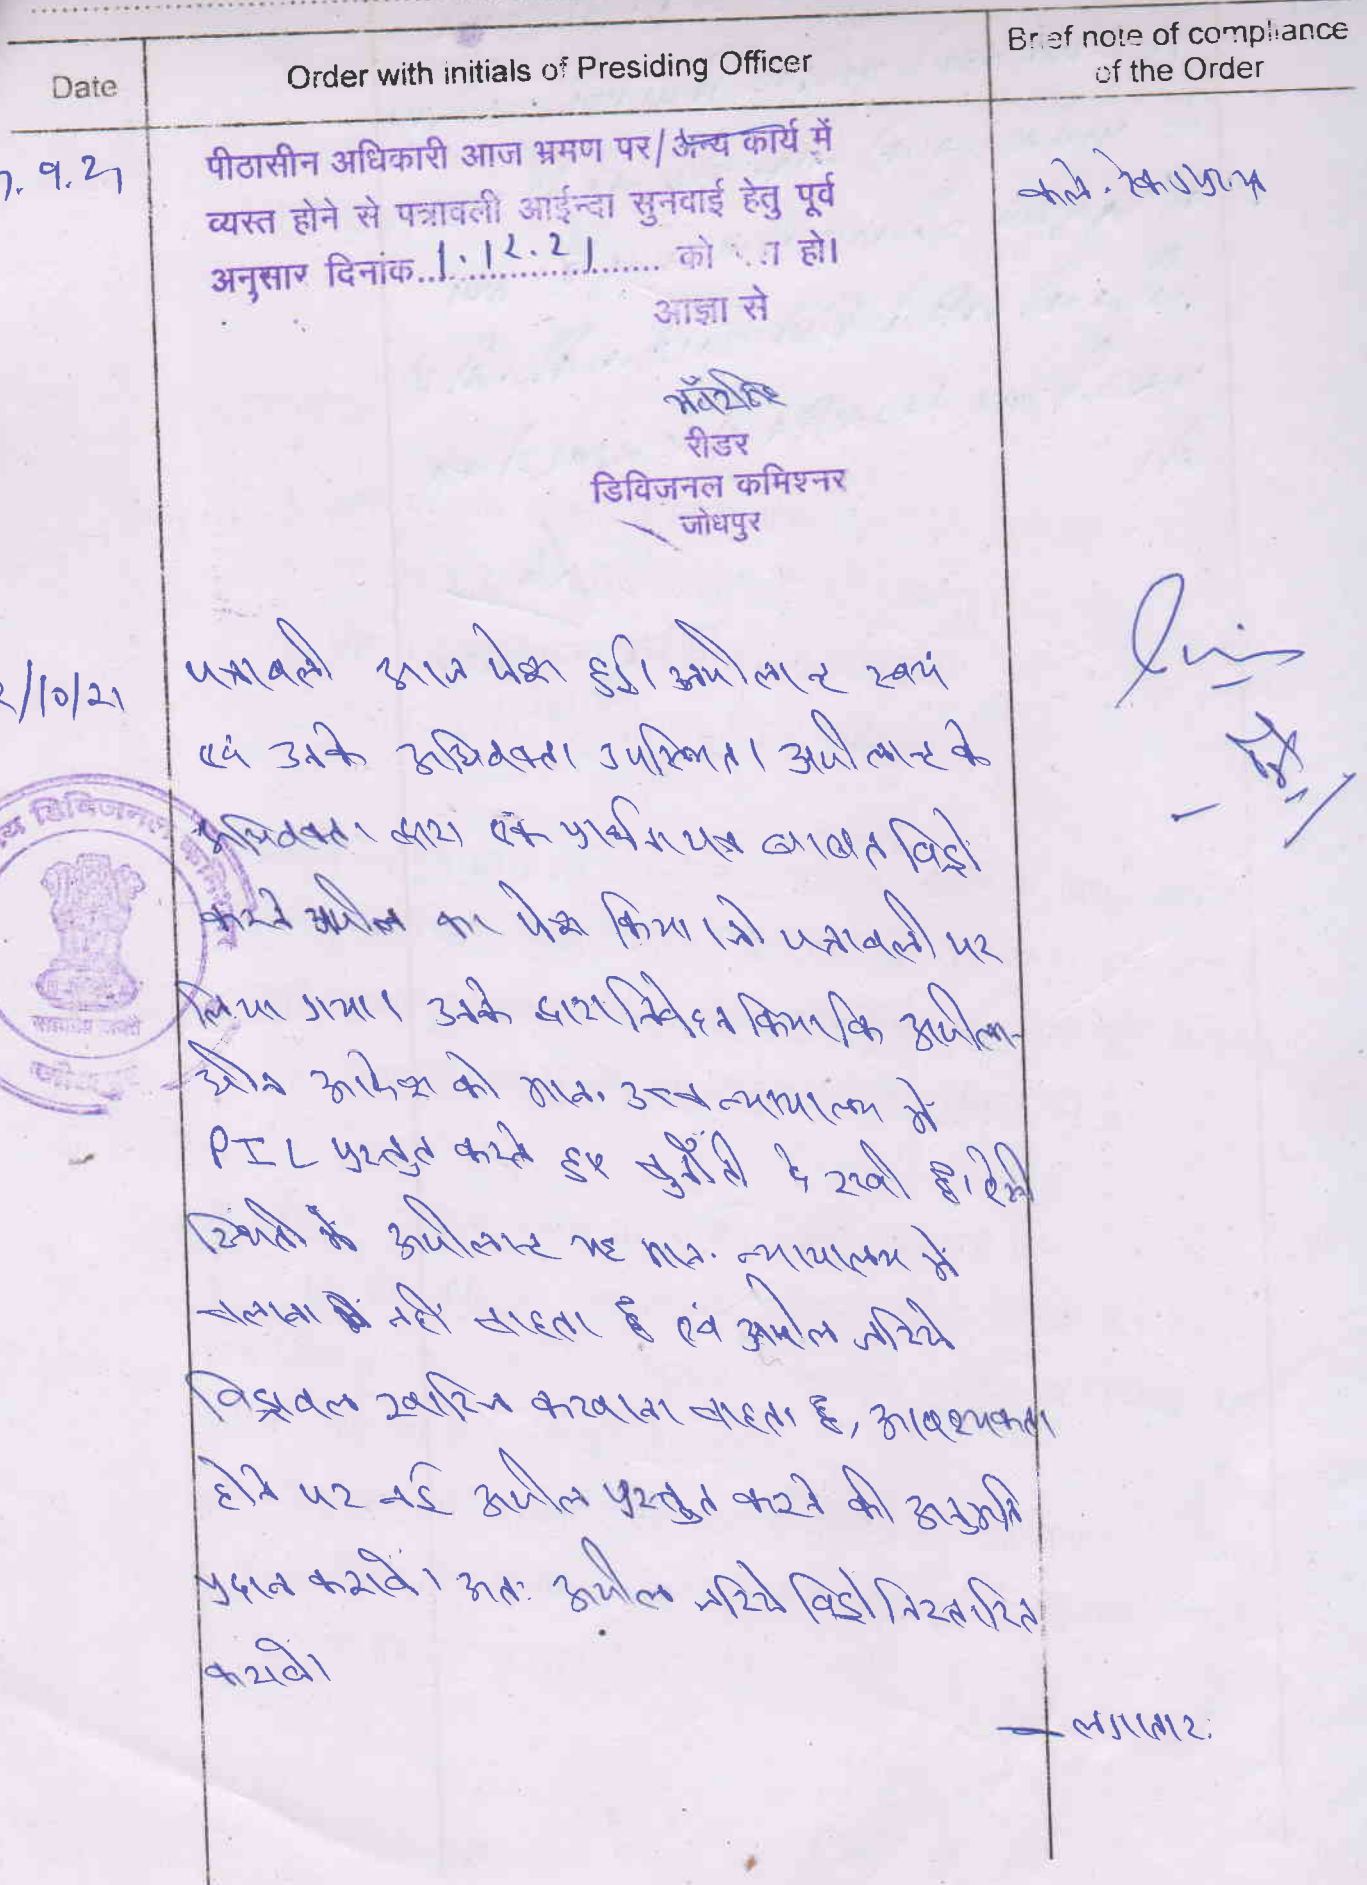 Date
Order with initials of Presiding Officer
Brief note of compliance
of the Order
9.21
पीठासीन अधिकारी आज भ्रमण पर/अन्य कार्य में
व्यस्त होने से पत्रावली आईन्दा सुनवाई हेतु पूर्व
अनुसार दिनांक..1.12.21.......... को हो।
आज्ञा से
रीडर
डिविजनल कमिश्नर
जोधपुर
/10/21
पत्रावली आज पेश हुई। अपीलान्ट स्वयं
एवं उनके अधिवक्ता उपस्थित। अपीलान्ट के
अधिवक्ता द्वारा एक प्रार्थना पत्र बाबत विड्रो
करने अपील का पेश किया। जो पत्रावली पर
लिया गया। उनके द्वारा निवेदन किया कि अपीला-
धीन आदेश को मान. उच्च न्यायालय में
PIL प्रस्तुत करते हुए चुनौती दे रखी है। ऐसी
स्थिती में अपीलान्ट यह मान. न्यायालय में
चलाना नहीं चाहता है एवं अपील जरिये
विड्रावल खारिज करवाना चाहता है, आवश्यकता
होने पर नई अपील प्रस्तुत करने की अनुमति
प्रदान करावें। अतः अपील जरिये विड्रो निस्तारित
करावें।
— लगातार.
डिविजनल
जोधपुर